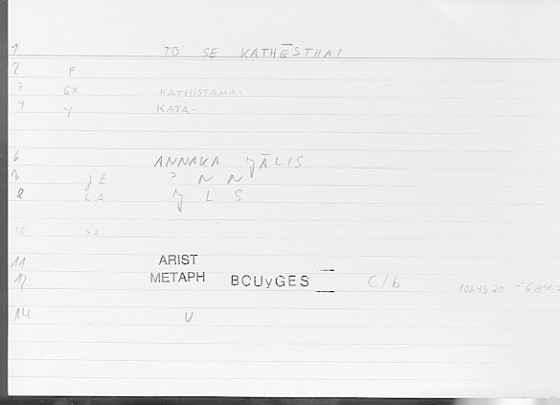 1 TO SE KATHĒSTHAI
2 P
3 GX KATHISTAMAI
4 y KATA-
6 ANNAKA ʒĀLIS
LA ʒ L S
10 SA
11 ARIST
METAPH BOUyGES C/b 1024b20
14 U